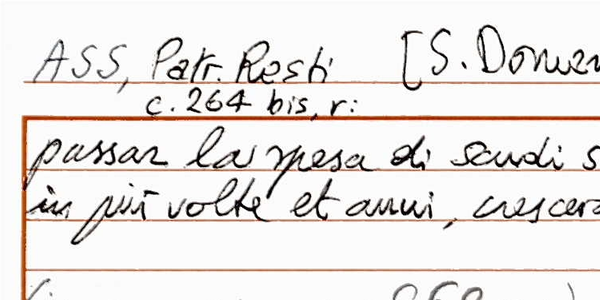 ASS, Patr. Resti [S. Domen
c. 264 bis, r:
passar la spesa di scudi s
in più volte et anni, crescerà